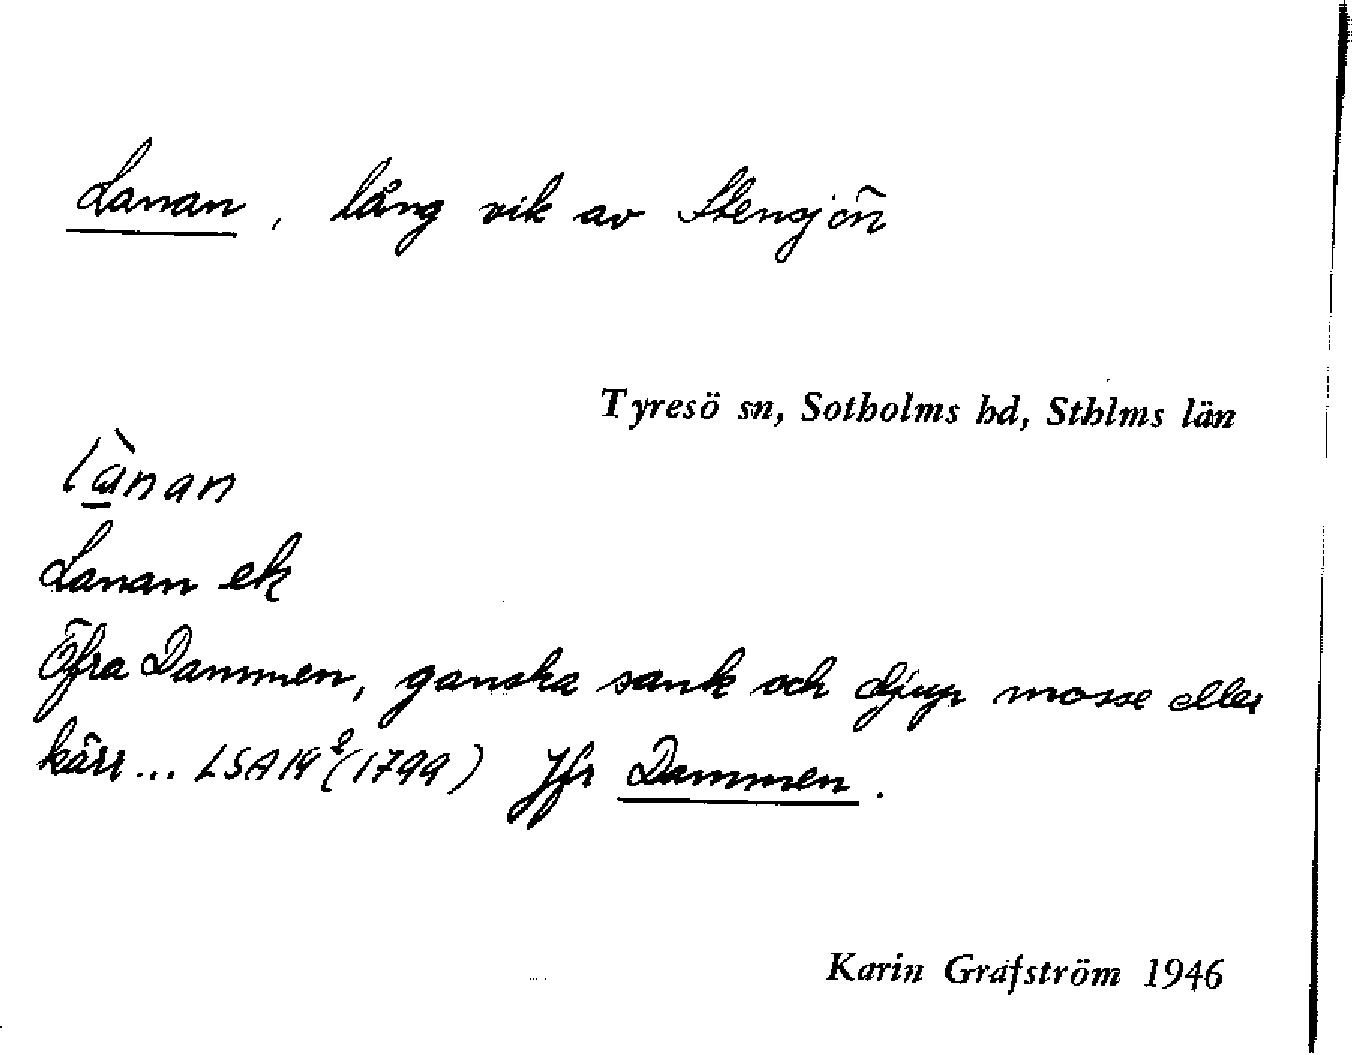 Lanan, lång vik av Stensjön
Tyresö sn, Sotholms hd, Sthlms län
lànan
Lanan ek
Öfra Dammen, ganska sank och djup mosse eller
kärr... LSA 19² (1799) Jfr Dammen.
Karin Grafström 1946